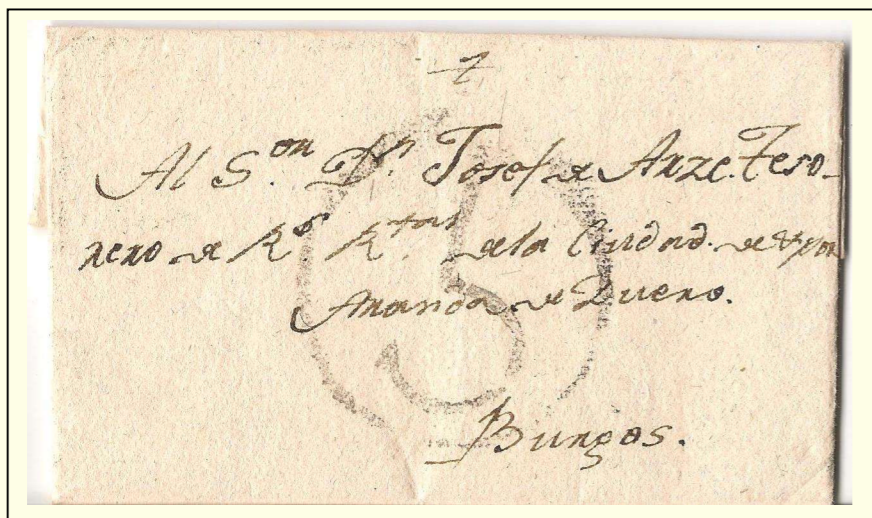 Al S.or Dn. Josef de Arze. Teso-
rero de Rs. Rtas de la Ciudad. de
Aranda de Duero.
Burgos.
5